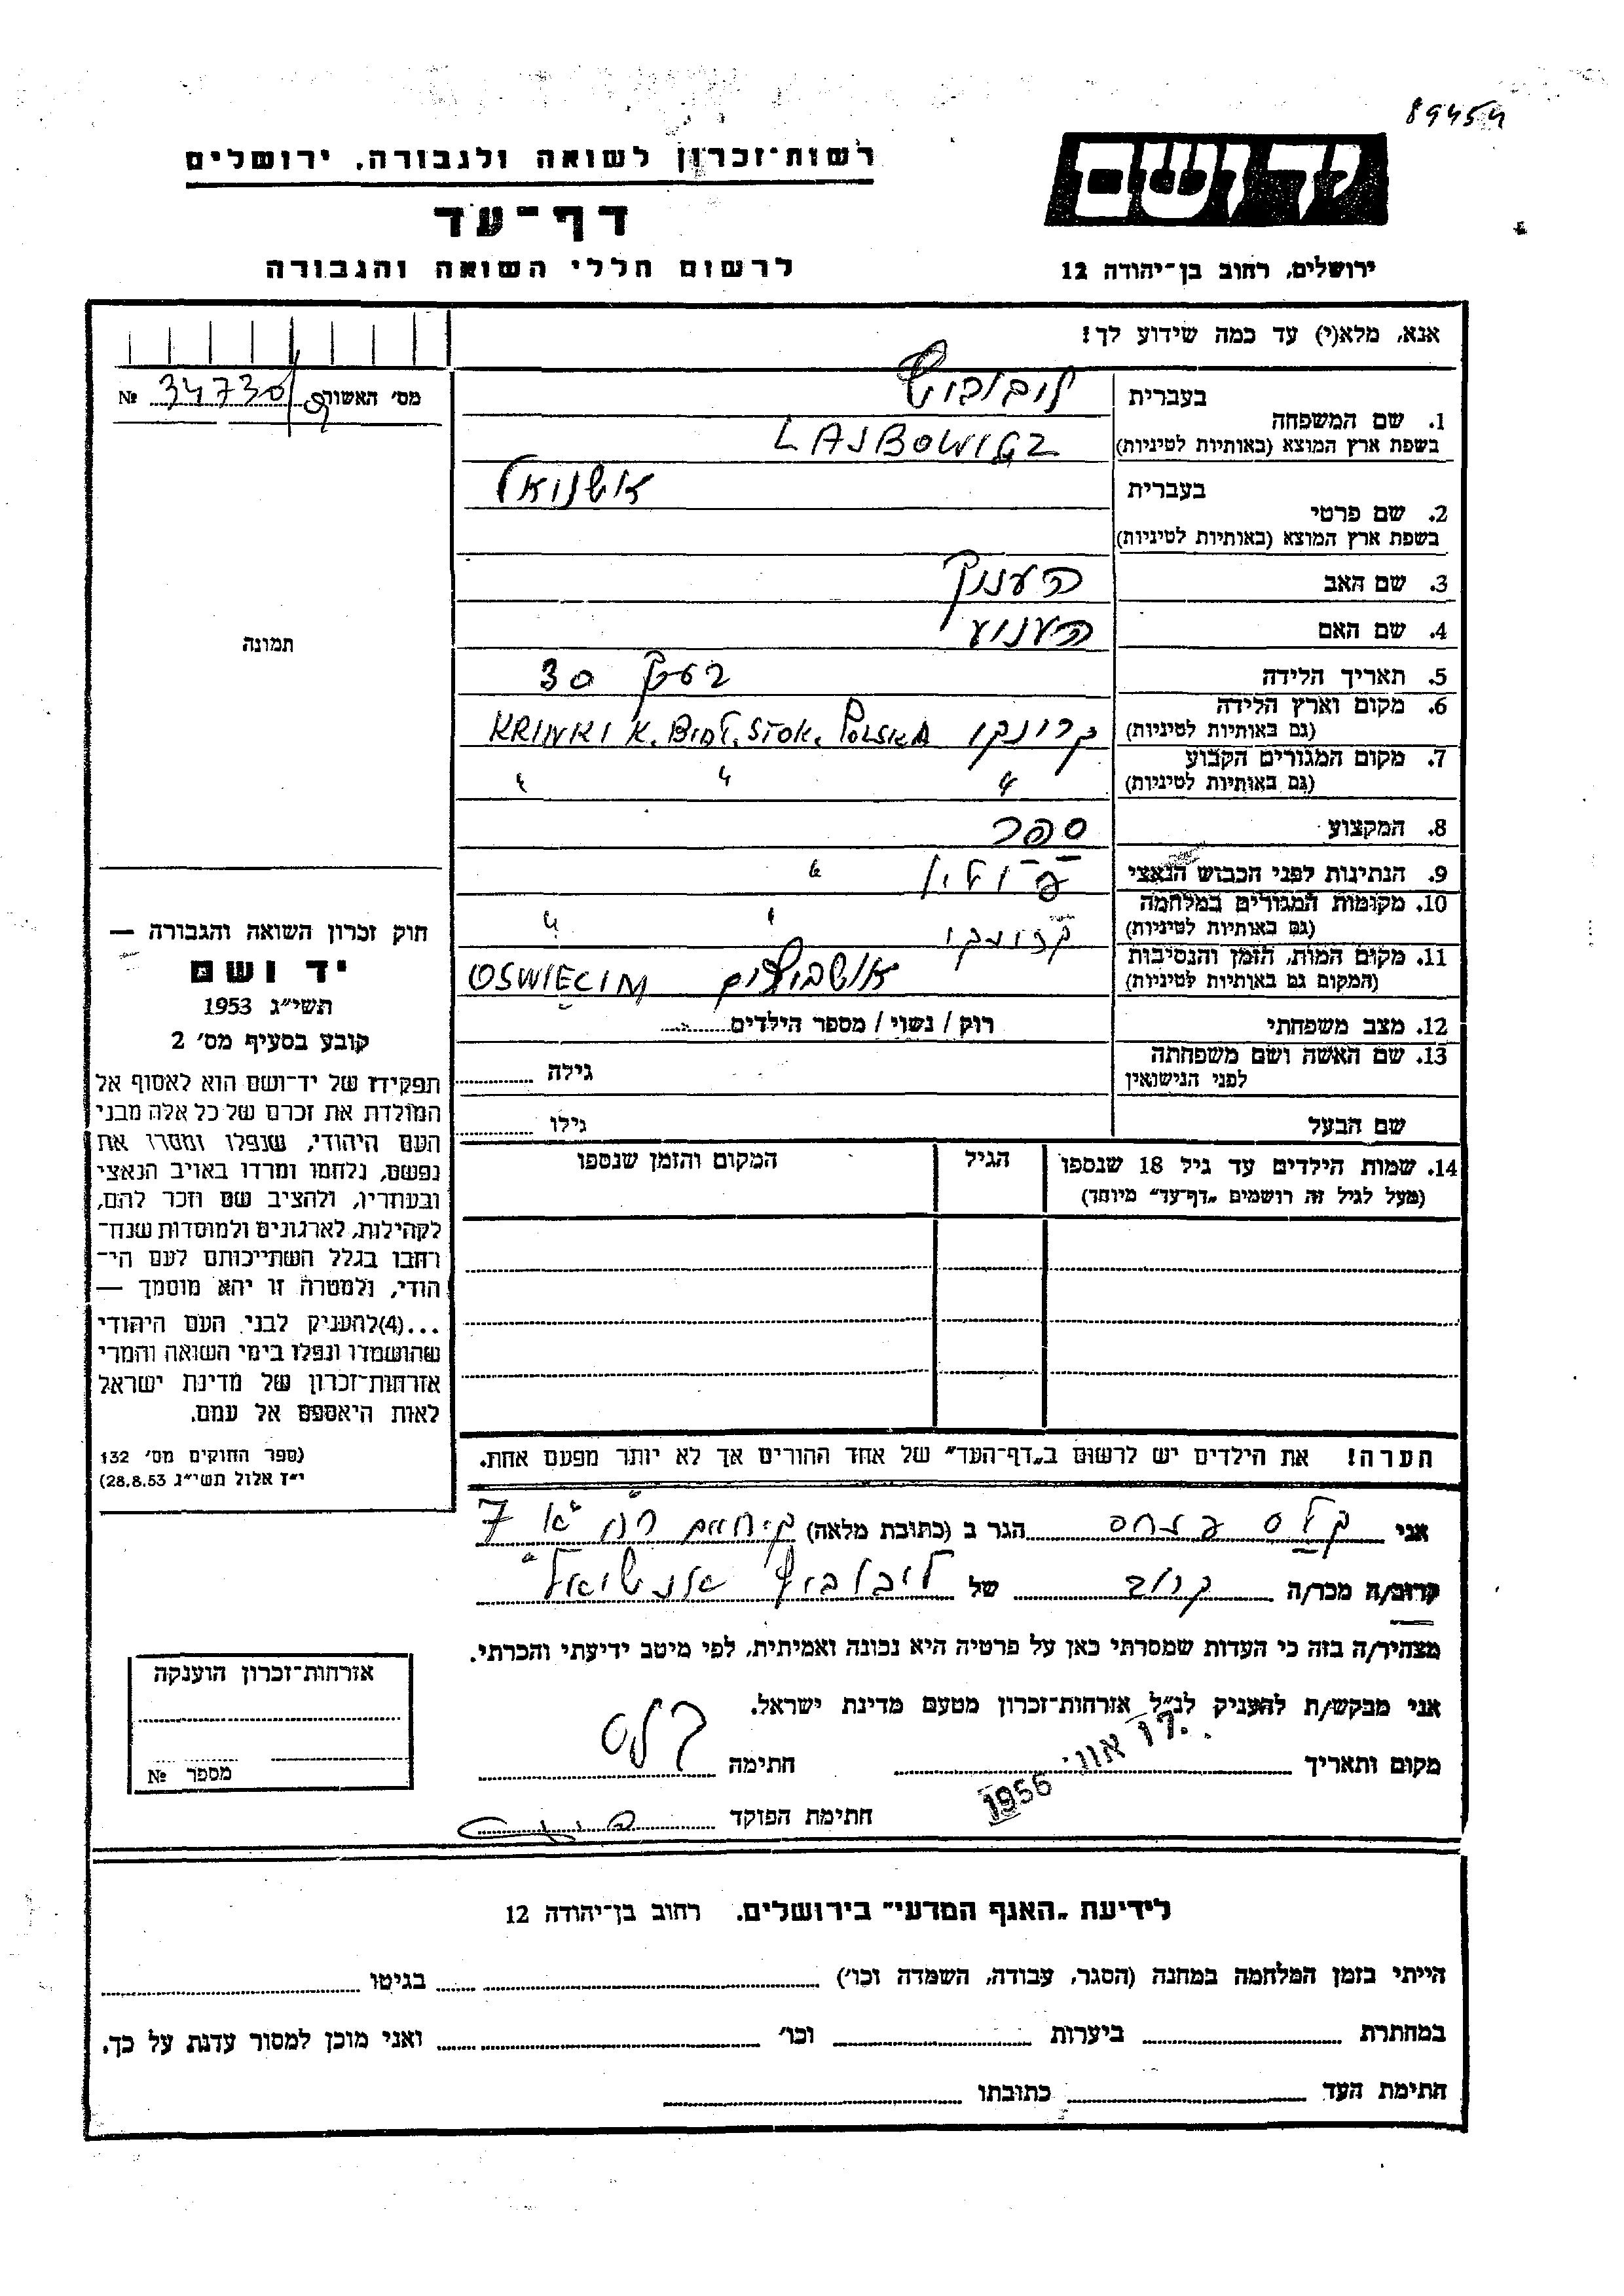 89454
רשות־זכרון לשואה ולגבורה, ירושלים
יד ושם
דף־עד
לרשום חללי השואה והגבורה
ירושלים, רחוב בן־יהודה 12
אנא, מלא(י) עד כמה שידוע לך!
מס׳ האשור № 34730/
1. שם המשפחה
בעברית
בשפת ארץ המוצא (באותיות לטיניות) LAJBOWICZ
2. שם פרטי
בעברית
בשפת ארץ המוצא (באותיות לטיניות)
3. שם האב הענוך
4. שם האם
תמונה
5. תאריך הלידה 30
6. מקום וארץ הלידה
(גם באותיות לטיניות) קרונקי KRINKI K. BIAŁ.STOK. POLSKA
7. מקום המגורים הקבוע
(גם באותיות לטיניות) " " "
8. המקצוע ספר
9. הנתינות לפני הכבוש הנאצי פולין "
10. מקומות המגורים במלחמה
(גם באותיות לטיניות) קרונקי " "
11. מקום המות, הזמן והנסיבות
(המקום גם באותיות לטיניות) OSWIECIM
12. מצב משפחתי רוק / נשוי / מספר הילדים
13. שם האשה ושם משפחתה
לפני הנישואין גילה
שם הבעל גילו
14. שמות הילדים עד גיל 18 שנספו
(מעל לגיל זה רושמים „דף־עד״ מיוחד)
הגיל
המקום והזמן שנספו
חוק זכרון השואה והגבורה —
יד ושם
תשי״ג 1953
קובע בסעיף מס׳ 2
תפקידו של יד־ושם הוא לאסוף אל
המולדת את זכרם של כל אלה מבני
העם היהודי, שנפלו ומסרו את
נפשם, נלחמו ומרדו באויב הנאצי
ובעוזריו, ולהציב שם וזכר להם,
לקהילות, לארגונים ולמוסדות שנח־
רחבו בגלל השתייכותם לעם הי־
הודי, ולמטרה זו יהא מוסמך —
...(4)להעניק לבני העם היהודי
שהושמדו ונפלו בימי השואה והמרי
אזרחות־זכרון של מדינת ישראל
לאות היאספם אל עמם.
(ספר החוקים מס׳ 132
י״ז אלול תשי״ג 28.8.53)
הערה! את הילדים יש לרשום ב„דף־העד״ של אחד ההורים אך לא יותר מפעם אחת.
אני קלס הגר ב (כתובת מלאה) 7
קרוב/ה מכר/ה קרוב של
מצהיר/ה בזה כי העדות שמסרתי כאן על פרטיה היא נכונה ואמיתית, לפי מיטב ידיעתי והכרתי.
אני מבקש/ת להעניק לנ״ל אזרחות־זכרון מטעם מדינת ישראל.
מקום ותאריך 1956 חתימה קלס
חתימת הפוקד
אזרחות־זכרון הוענקה
מספר №
לידיעת „האגף המדעי״ בירושלים. רחוב בן־יהודה 12
הייתי בזמן המלחמה במחנה (הסגר, עבודה, השמדה וכו׳) בגיטו
במחתרת ביערות וכו׳ ואני מוכן למסור עדות על כך.
חתימת העד כתובתו